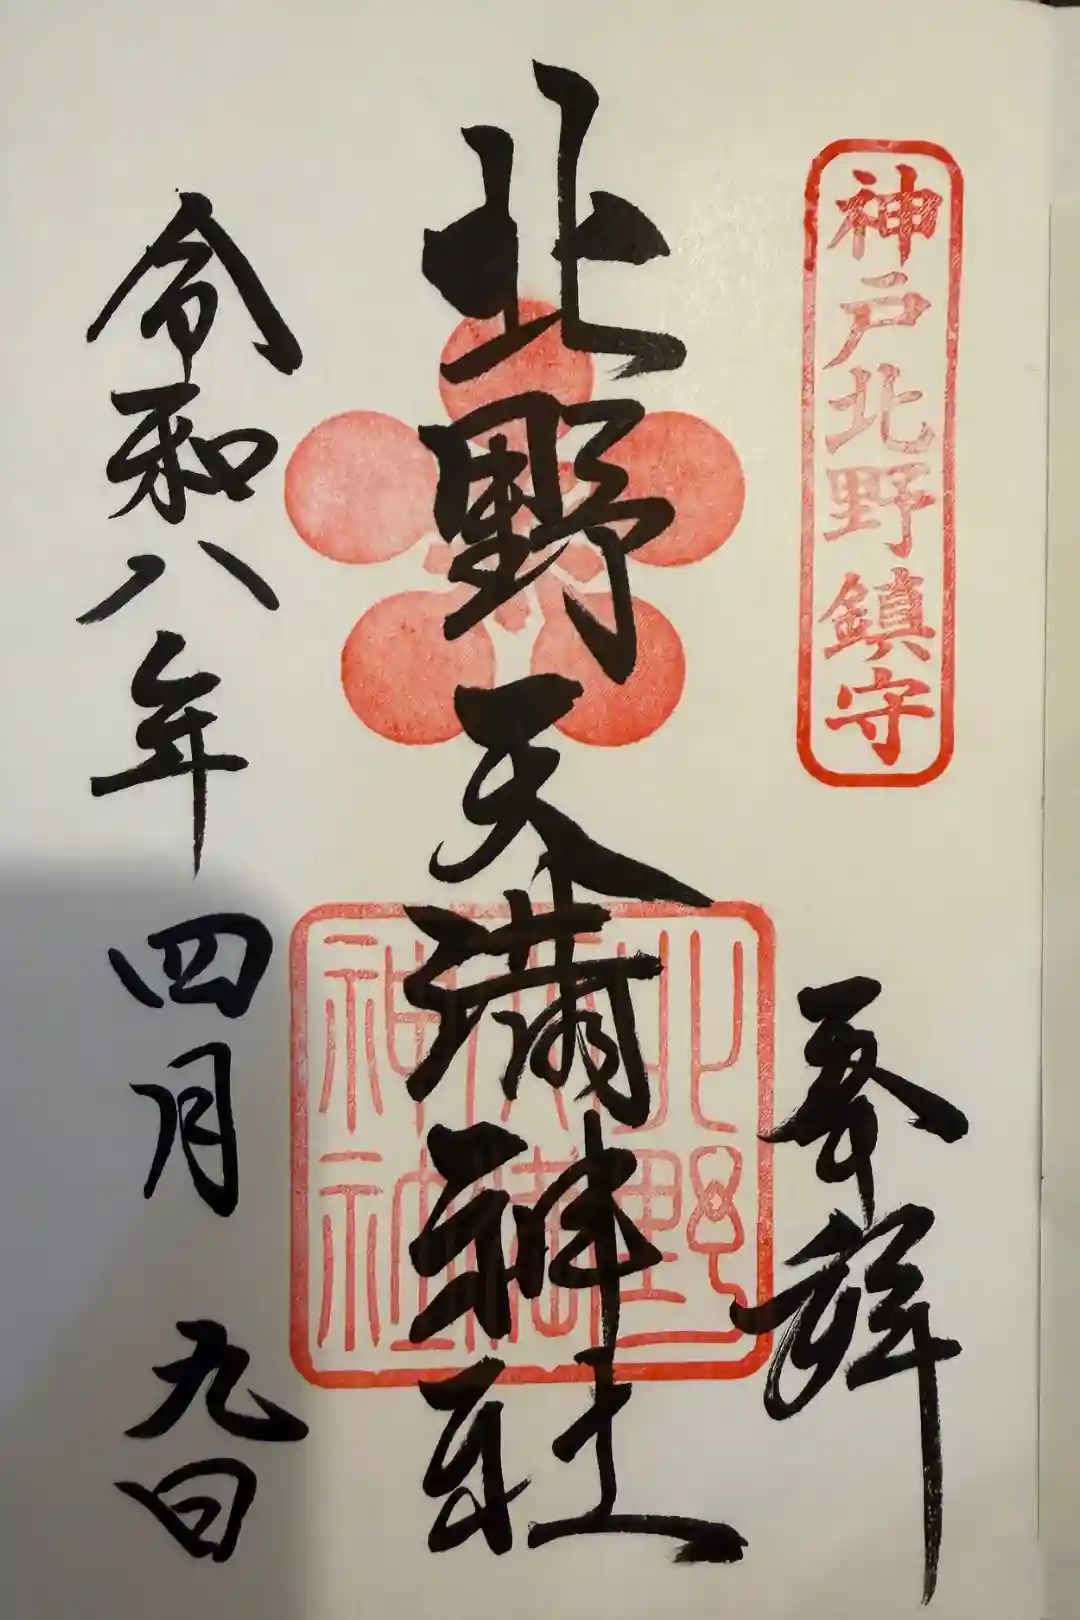 神戸北野鎮守
奉拝
北野天満神社
北野
天満
神社
令和八年四月九日